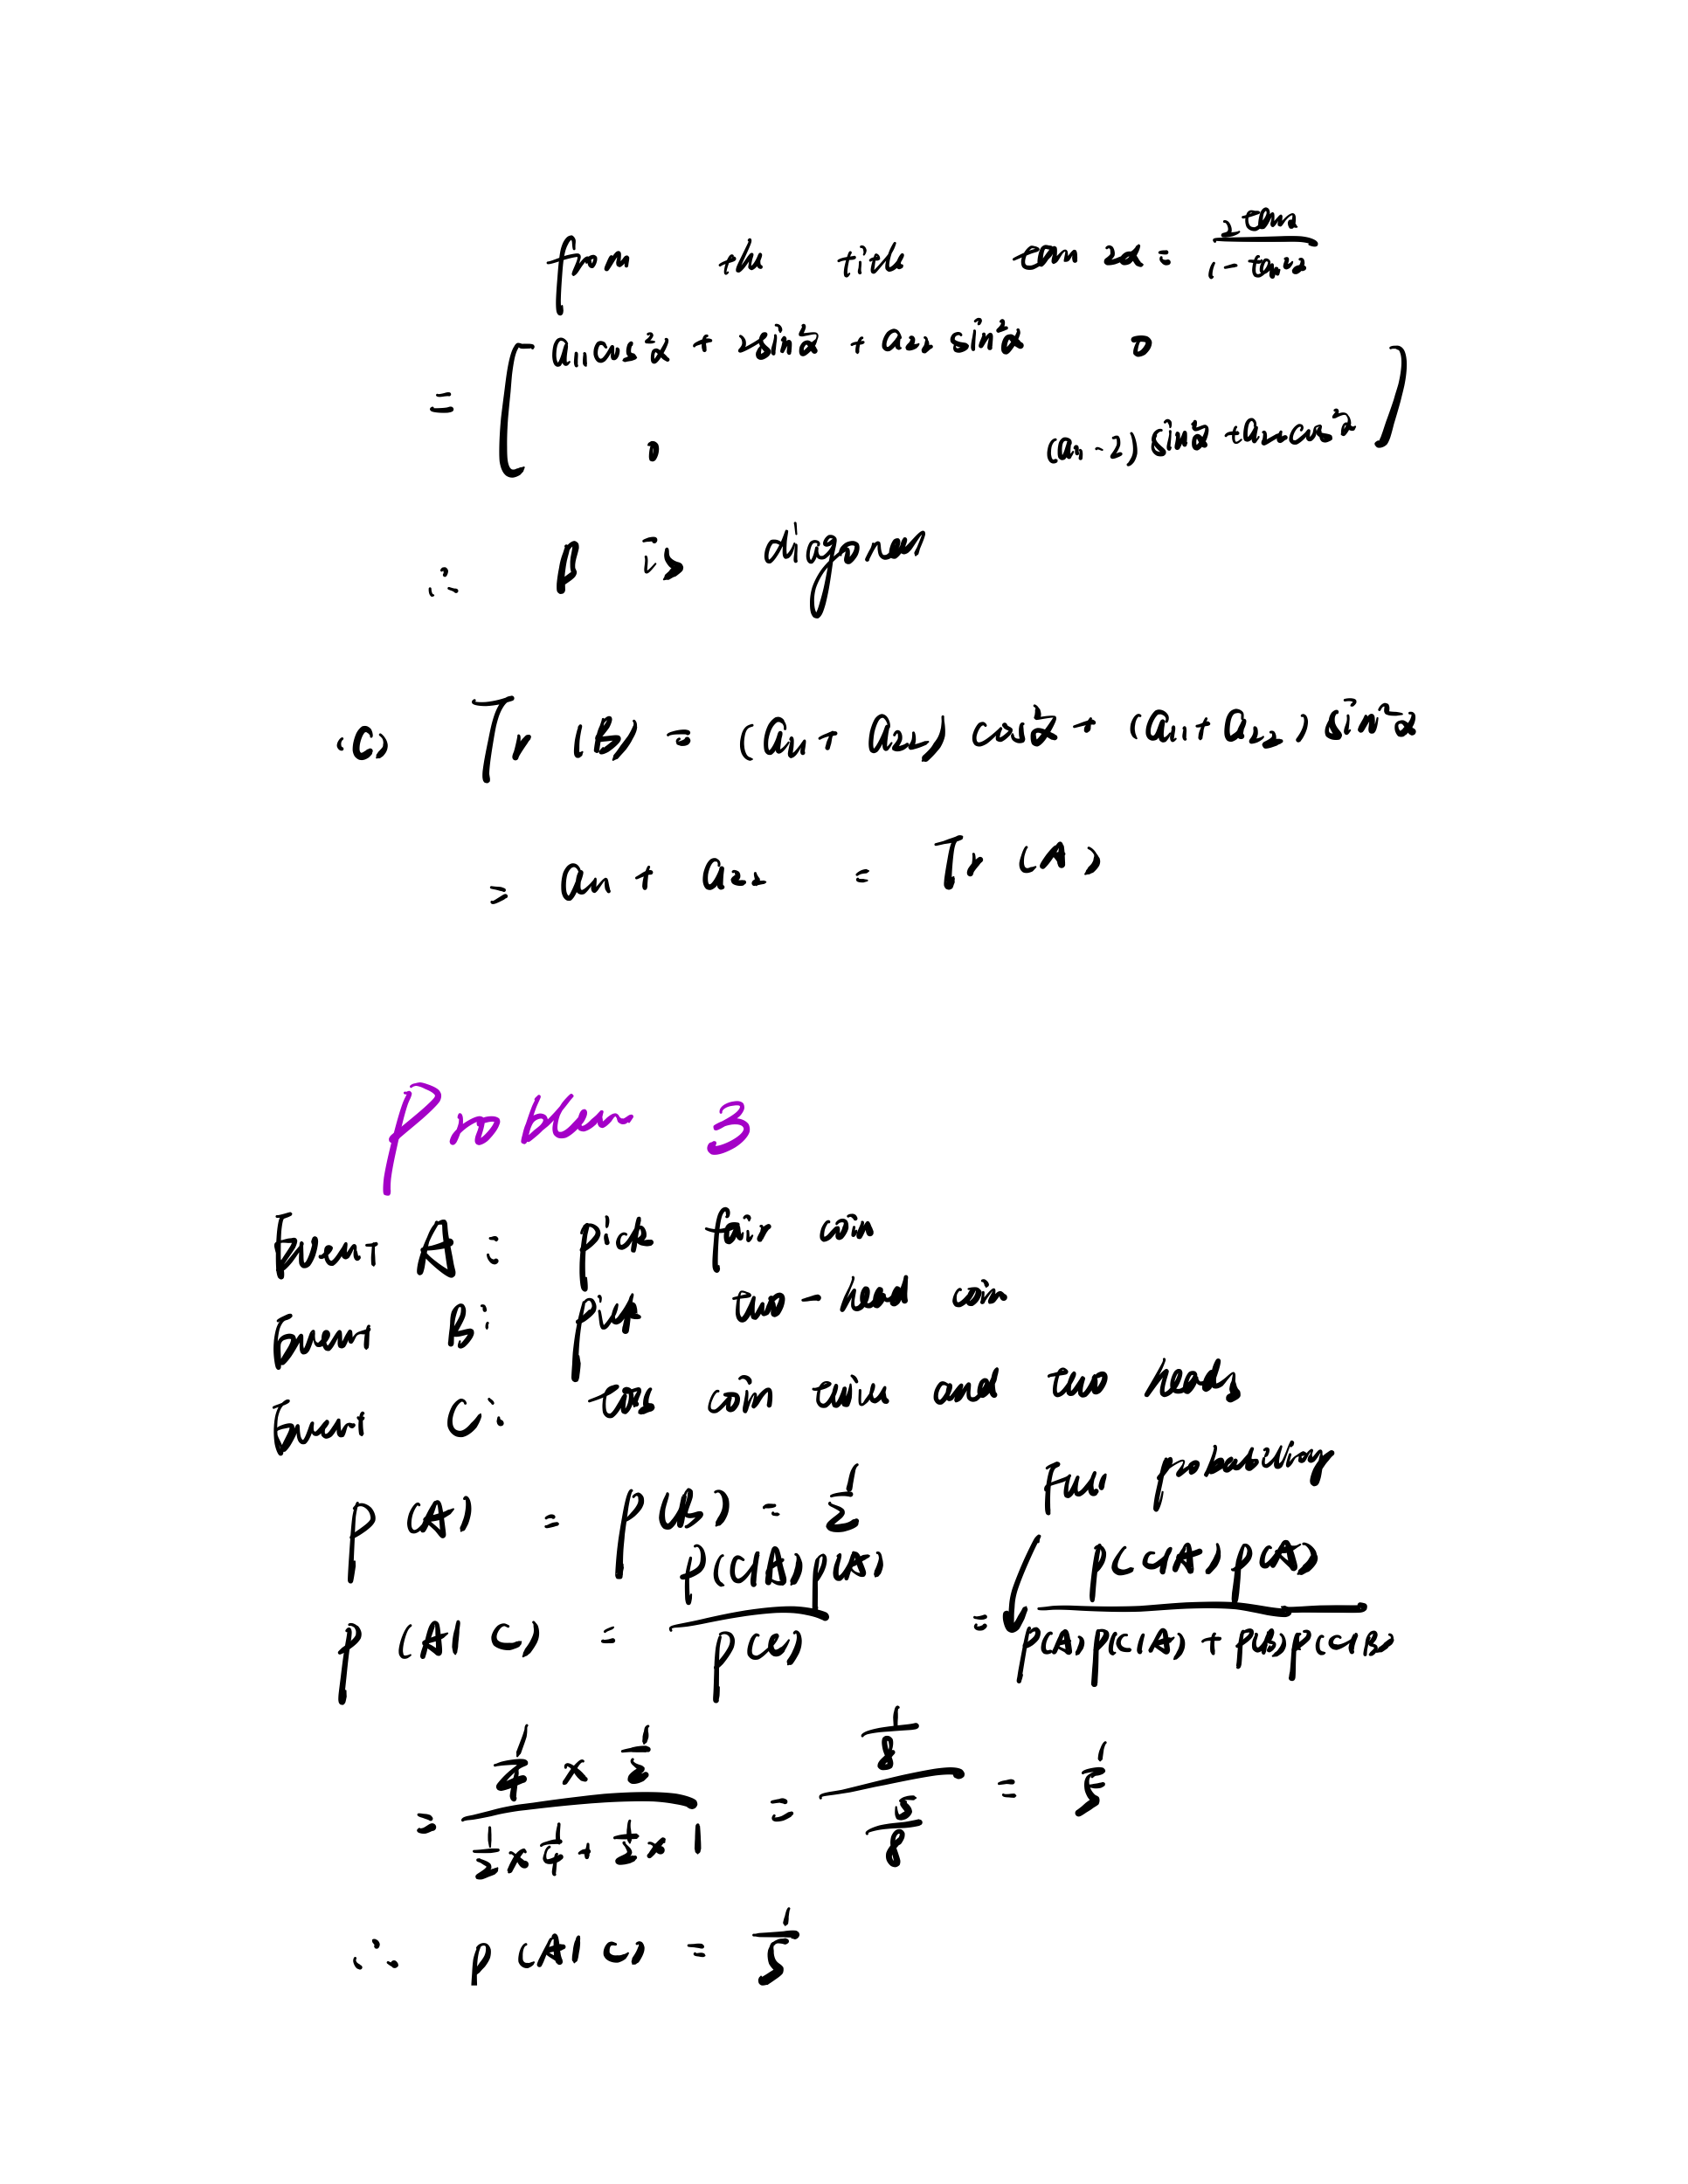 from the title tan 2α = 2tanα / (1 - tan²α)
= [ a₁₁cos²α + 2sin²α + a₂₂ sin²α 0
0 (a₁₁ - 2) sin²α + a₂₂cos²α ]
∴ B is diagonal
(c) Tr (B) = (a₁₁ + a₂₂) cos²α + (a₁₁ + a₂₂) sin²α
= a₁₁ + a₂₂ = Tr (A)
Problem 3
Event A : pick fair coin
Event B : pick two-head coin
Event C : toss coin twice and two heads
P (A) = P (B) = 1/2 Full probability
P (A | C) = P(C|A) P(A) / P(C) = P(C|A) P(A) / (P(A) P(C|A) + P(B) P(C|B))
= (1/4 × 1/2) / (1/2 × 1/4 + 1/2 × 1) = (1/8) / (5/8) = 1/5
∴ P (A | C) = 1/5